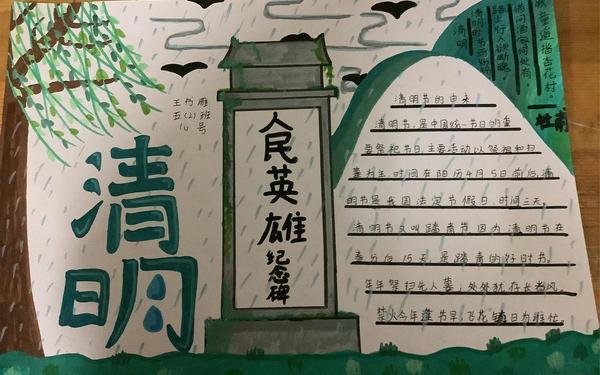 清明
王 雁
五(2)班
10 号
人民英雄纪念碑
清明
清明时节雨纷纷
路上行人欲断魂
借问酒家何处有
牧童遥指杏花村。
杜牧
清明节的由来
清明节,是中国统一节日的重
要祭祀节日,主要活动以祭祖和扫
墓为主,时间在阳历4月5日前后,清
明节是我国法定节假日,时间三天,
清明节又叫踏青节因为清明节在
春分后15天是踏青的好时节。
年年祭扫先人墓,处处犹存长者风。
禁火今年逢节早,飞花镇日为谁忙